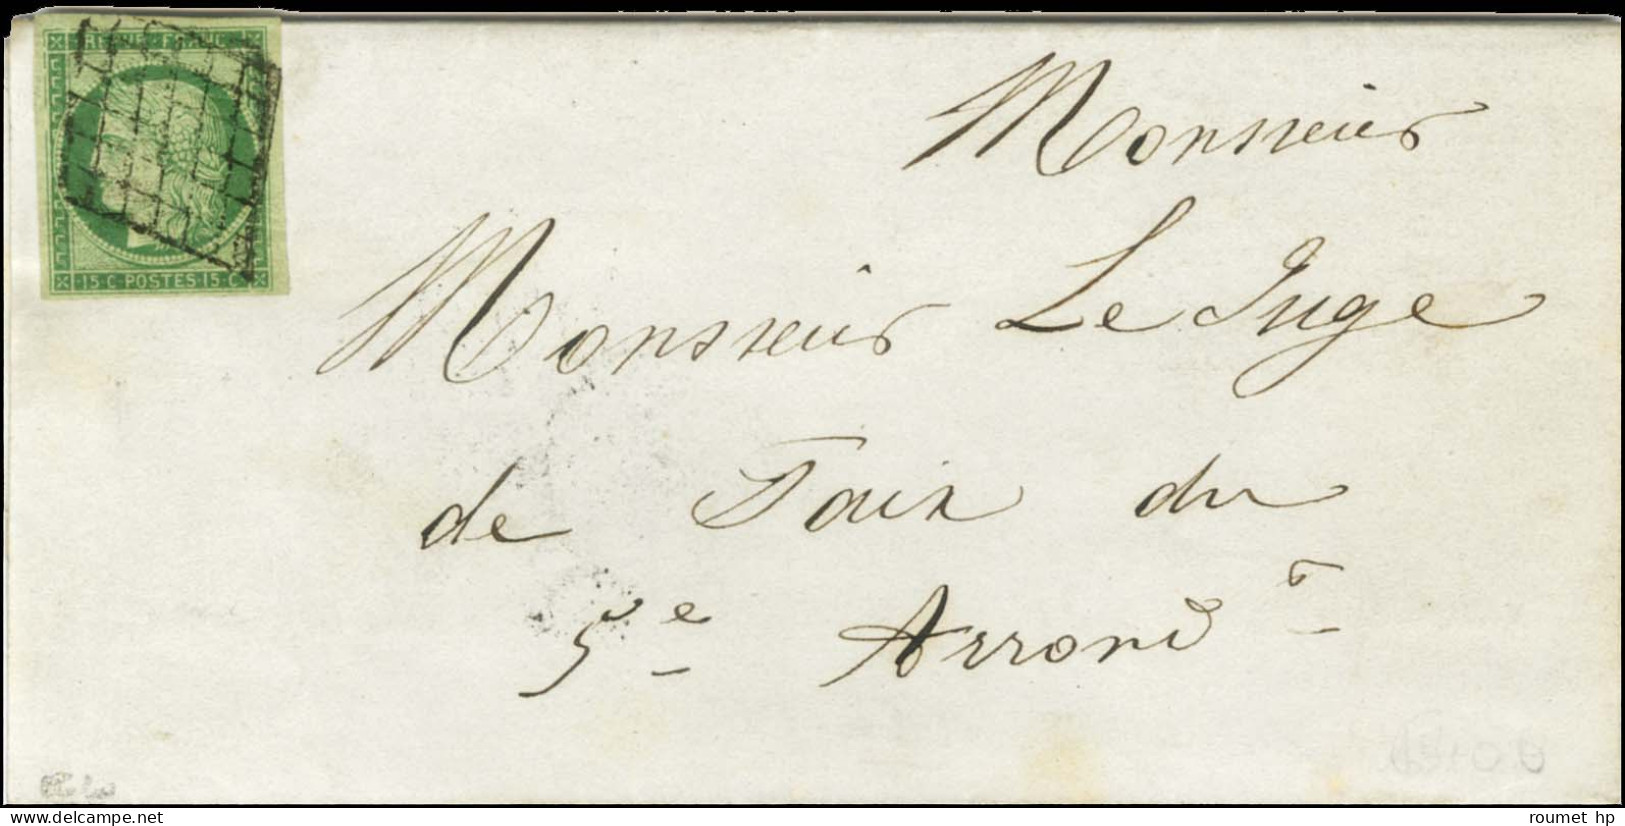 REPUB FRANC
15·C·POSTES·15·C
Monsieur
Monsieur Le Juge
de Paix du
5e Arrondt
roumet hp